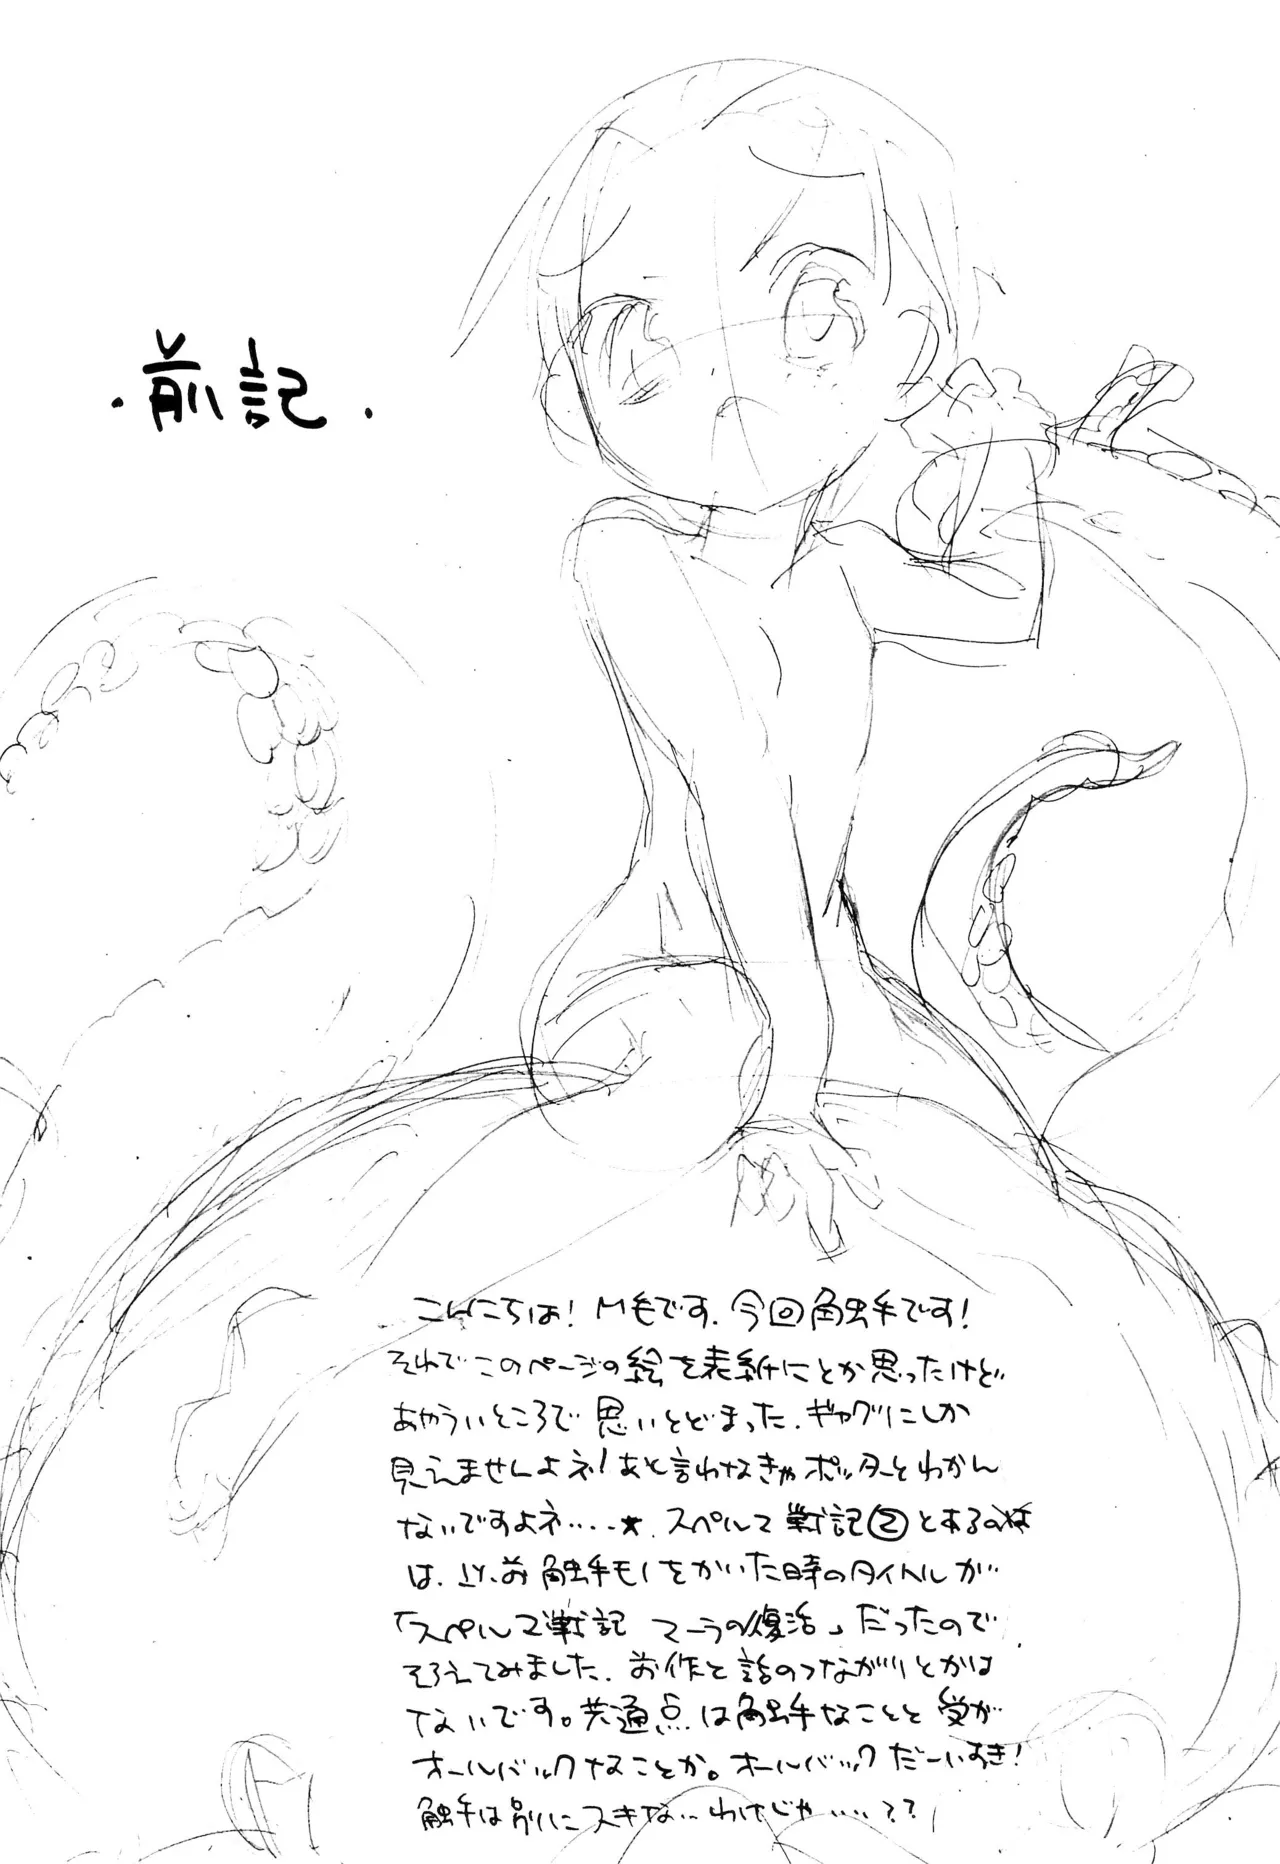 ・前記・
こんにちは！M毛です．今回触手です！
それでこのページの絵を表紙にとか思ったけど
あやういところで思いとどまった．ギャグにしか
見えませんよネ！あと言わなきゃポッターとわかん
ないですよネ・・・・★．スペルマ戦記②とあるのは
は、以前触手モノをかいた時のタイトルが
「スペルマ戦記 マーラの復活」だったので
そろえてみました．前作と話のつながりとかは
ないです。共通点は触手なことと受が
オールバックなことか。オールバックだーいすき！
触手は別にスキな‥わけじゃ・・・・？？